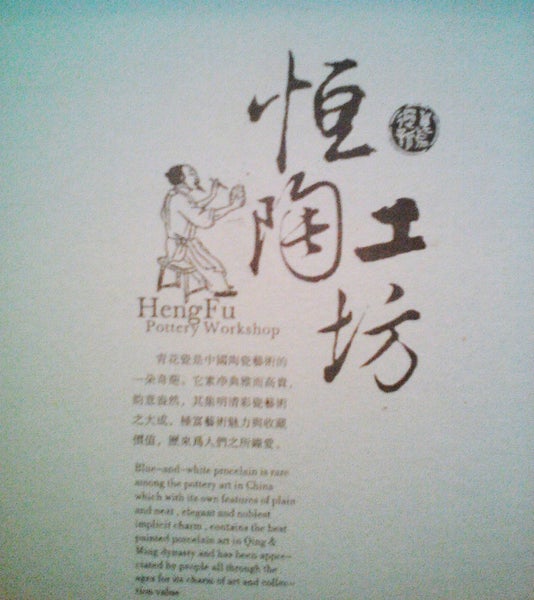 恒
陶工
坊
HengFu
Pottery Workshop
青花瓷是中國陶瓷藝術的
一朵奇葩。它素净典雅而高貴，
韵意盎然，其集明清彩瓷藝術
之大成，極富藝術魅力與收藏
價值，歷來爲人們之所鐘愛。
Blue-and-white procelain is rare
among the pottery art in China
which with its own features of plain
and neat , elegant and noblest
implicit charm , contains the best
painted porcelain art in Qing &
Ming dynasty and has been appre-
ciated by people all through the
ages for its charm of art and collec-
tion value